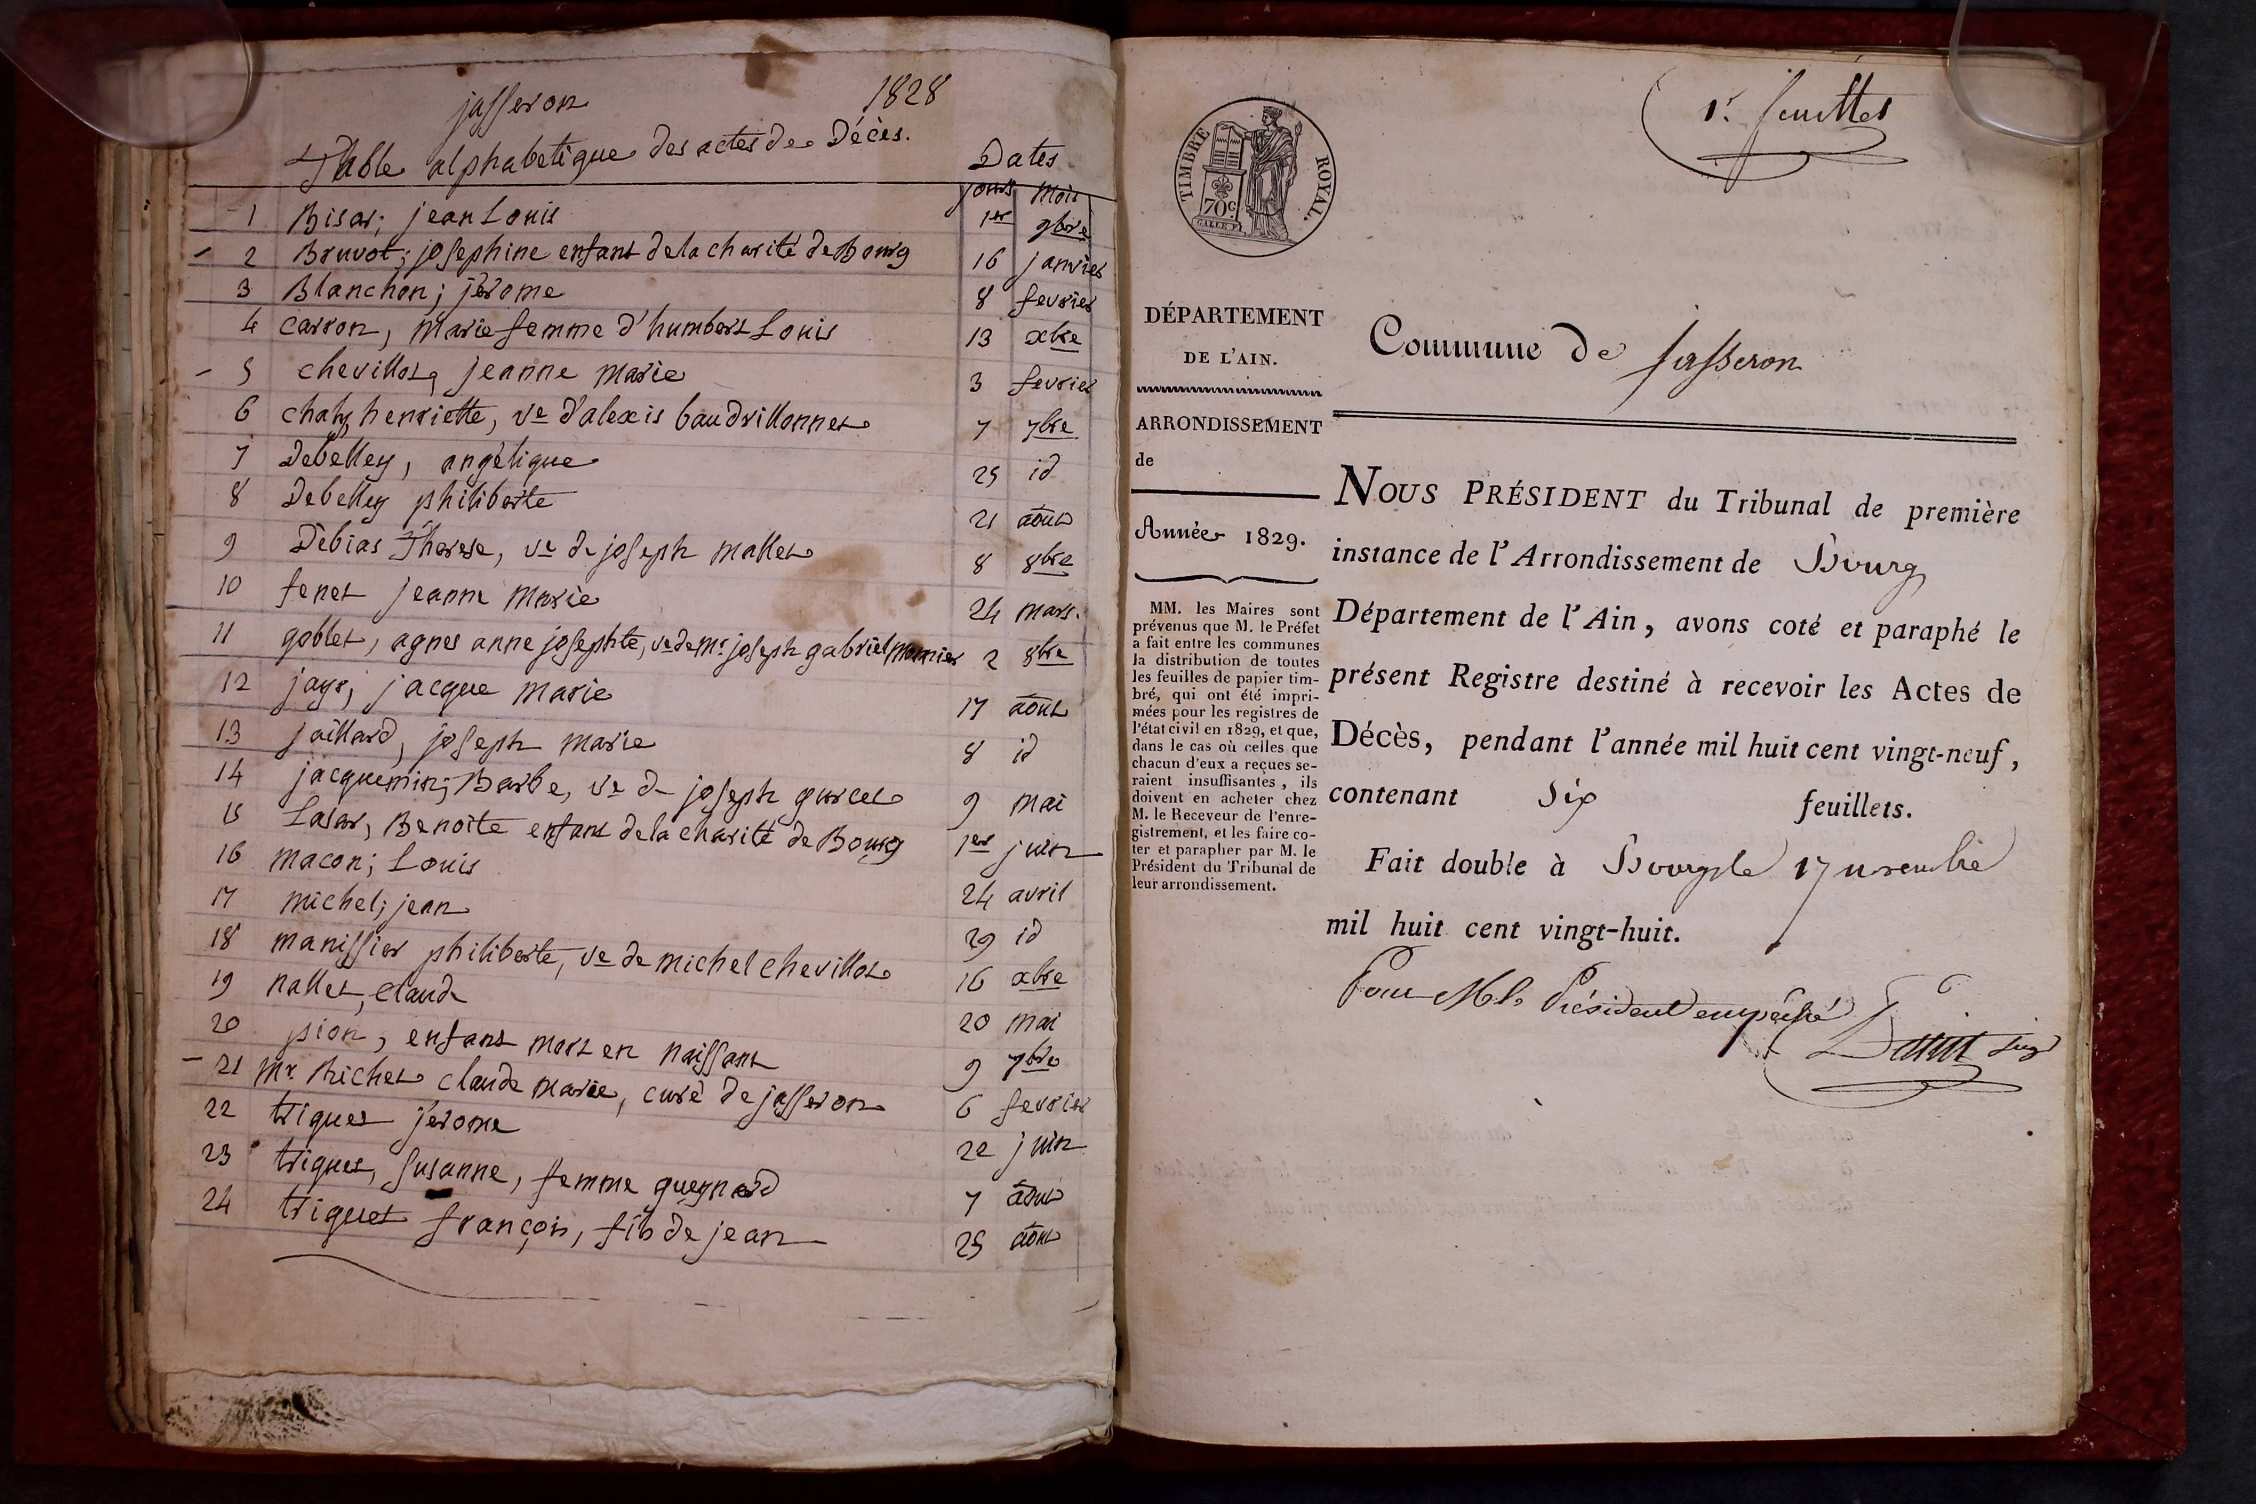 jasseron 1828
Table alphabetique des actes de Décès.
Dates
jours mois
1 Bisar; jean Louis 1er 9bre
2 Bruvot; josephine enfant de la charité de Bourg 16 janvier
3 Blanchon; jérome 8 fevrier
4 carron, Marie femme d'humbert Louis 13 xbre
5 chevillot, jeanne marie 3 fevrier
6 chaty henriette, ve d'alexis baudrillonnet 7 7bre
7 Debelley, angélique 25 id
8 Debelley philiberte 21 aout
9 Debias Therese, ve de joseph mallet 8 8bre
10 fenet jeanne Marie 24 mars.
11 goblet, agnes anne josephte, ve de mr joseph gabriel monnier 2 8bre
12 jayr, jacque marie 17 aout
13 jaillard, joseph marie 8 id
14 jacquemin; Barbe, ve de joseph gurcel 9 mai
15 Lasar, Benoite enfant de la charité de Bourg 1er juin
16 macon; Louis 24 avril
17 michel; jean 29 id
18 manissier philiberte, ve de michel chevillot 16 xbre
19 nallet, claude 20 mai
20 pion, enfant mort en naissant 9 7bre
21 mr. Richet claude marie, curé de jasseron 6 fevrier
22 triquet jerome 22 juin
23 triquet, susanne, femme gueynard 7 aout
24 triquet françois, fils de jean 25 aout
1r. feuillet
TIMBRE ROYAL.
70c
DÉPARTEMENT
DE L'AIN.
ARRONDISSEMENT
de
Année 1829.
MM. les Maires sont
prévenus que M. le Préfet
a fait entre les communes
la distribution de toutes
les feuilles de papier tim-
bré, qui ont été impri-
mées pour les registres de
l'état civil en 1829, et que,
dans le cas où celles que
chacun d'eux a reçues se-
raient insuffisantes, ils
doivent en acheter chez
M. le Receveur de l'enre-
gistrement, et les faire co-
ter et parapher par M. le
Président du Tribunal de
leur arrondissement.
Commune de Jasseron
NOUS PRÉSIDENT du Tribunal de première
instance de l'Arrondissement de Bourg
Département de l'Ain, avons coté et paraphé le
présent Registre destiné à recevoir les Actes de
Décès, pendant l'année mil huit cent vingt-neuf,
contenant Six feuillets.
Fait double à Bourg le 17 novembre
mil huit cent vingt-huit.
Pour M. le Président empêché